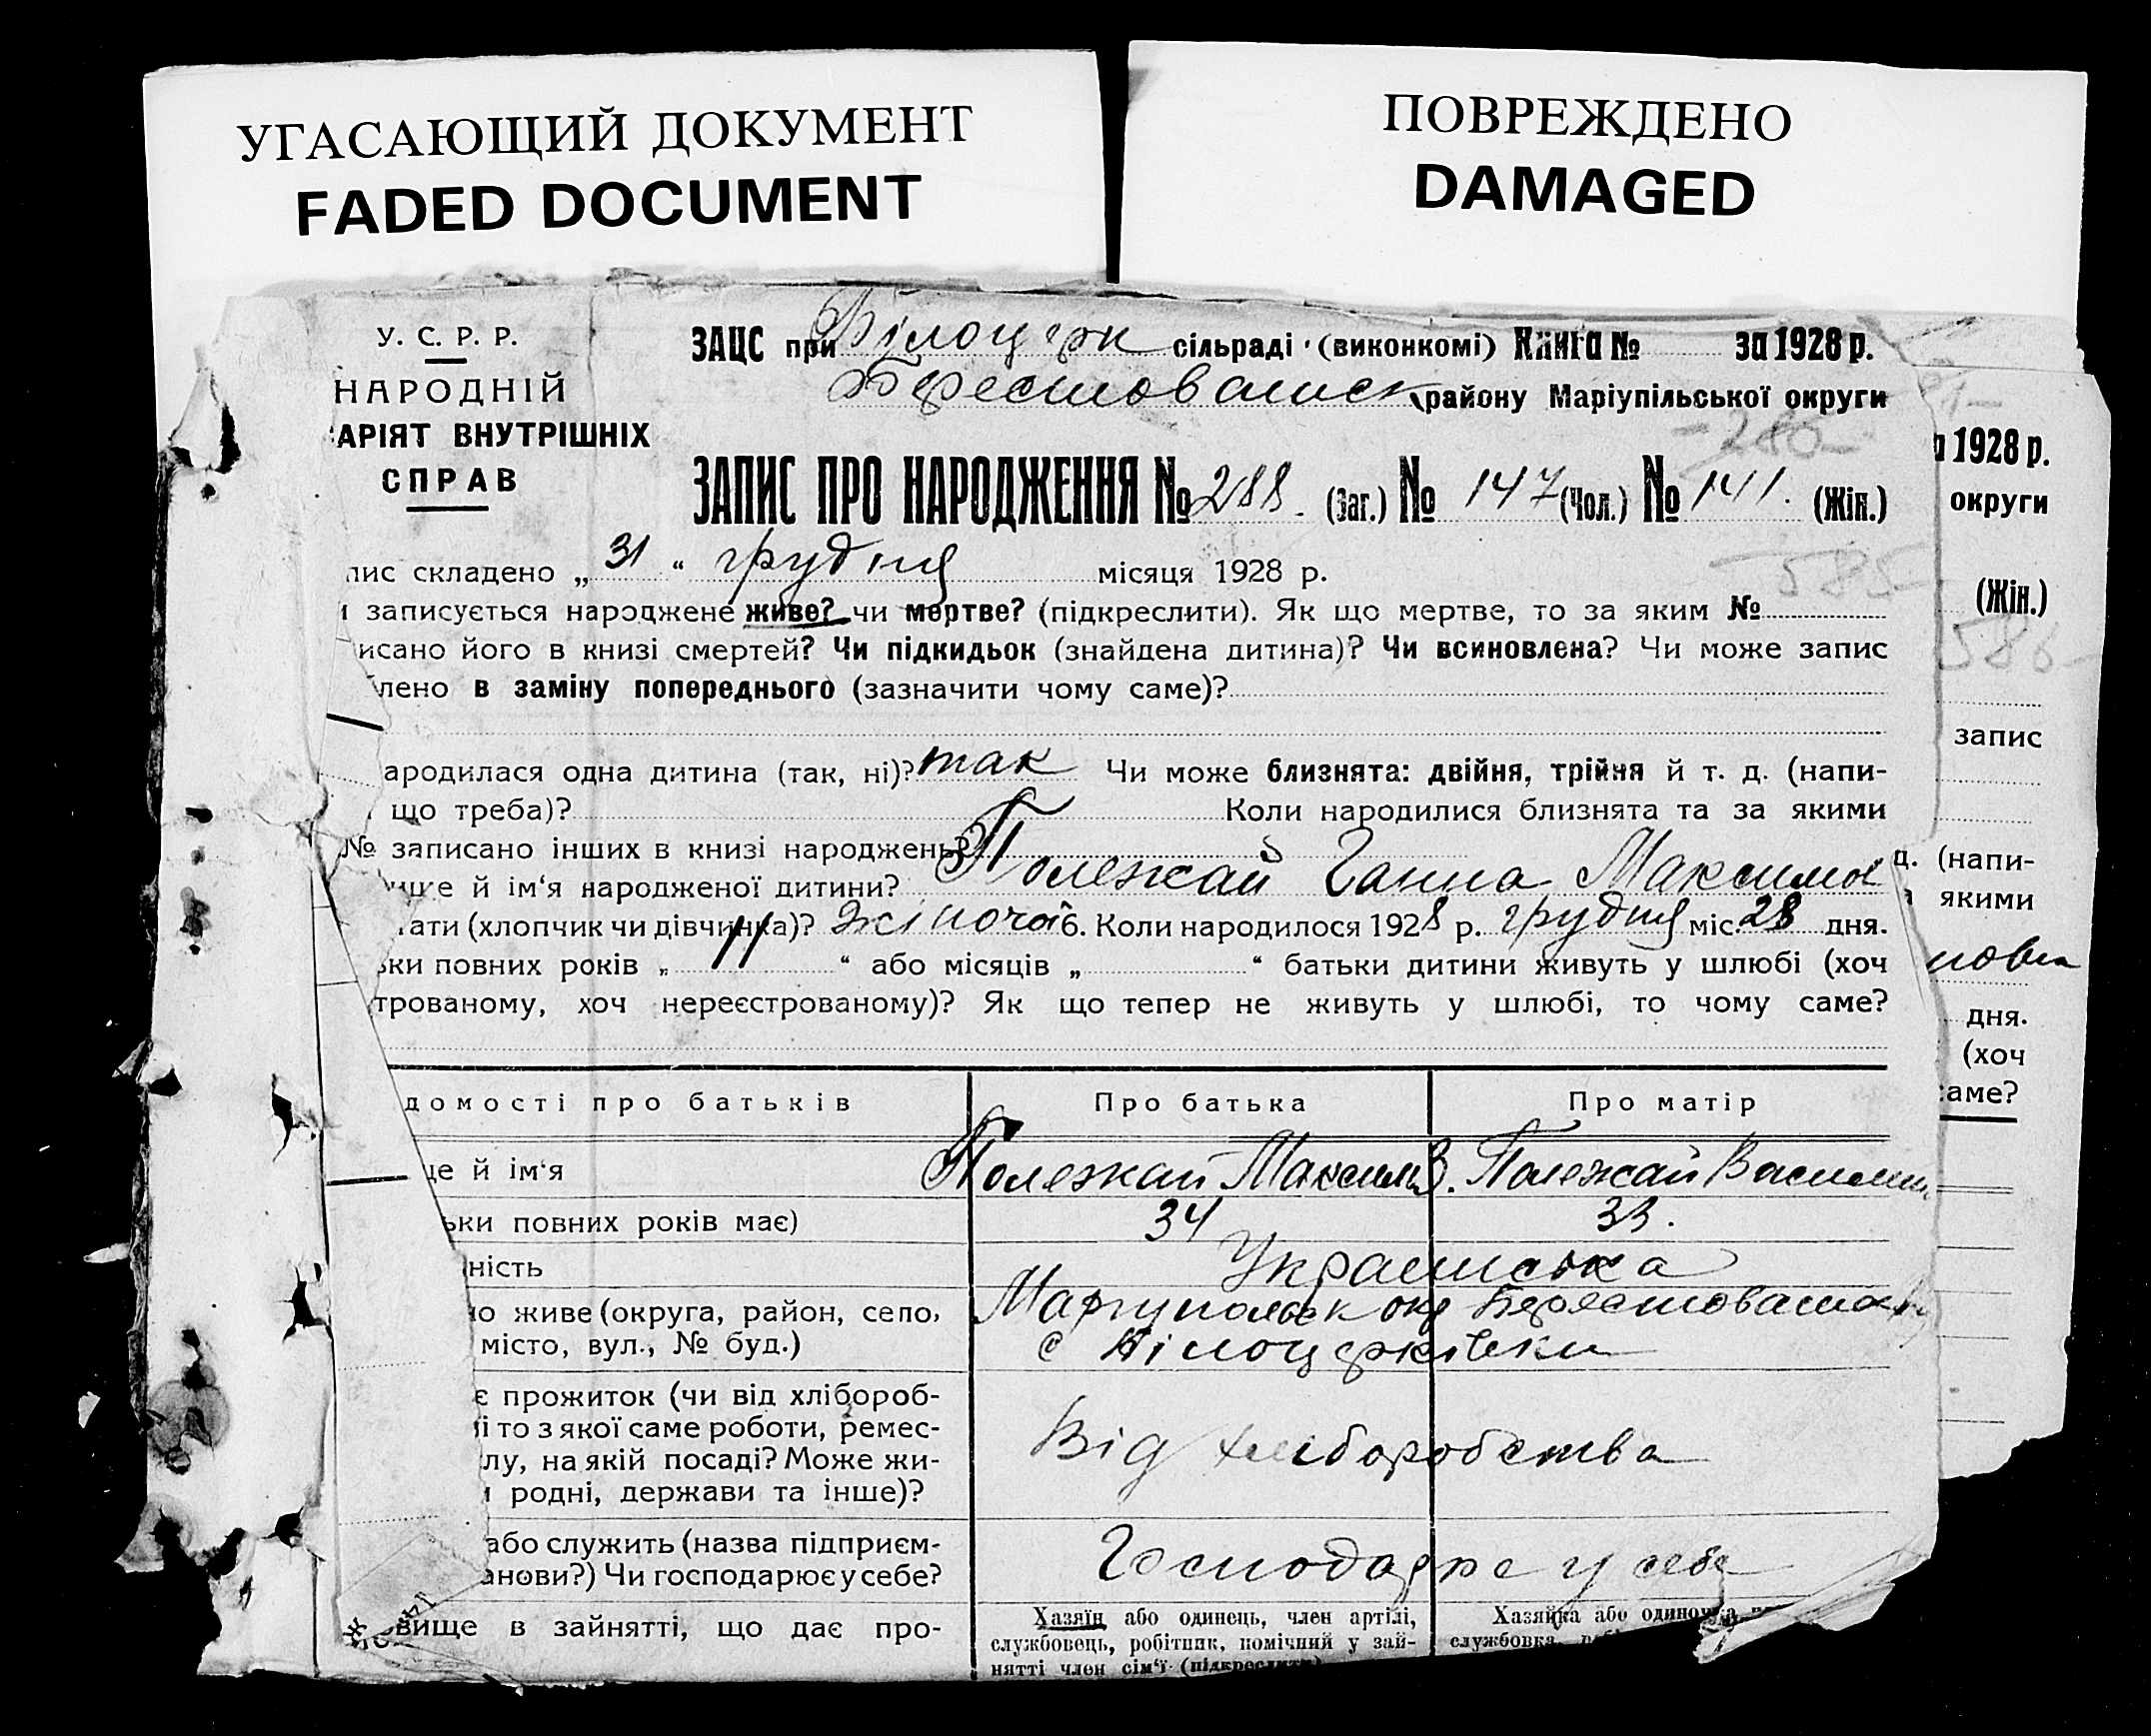 УГАСАЮЩИЙ ДОКУМЕНТ
FADED DOCUMENT
ПОВРЕЖДЕНО
DAMAGED
У. С. Р. Р.
НАРОДНІЙ
АРІЯТ ВНУТРІШНІХ
СПРАВ
ЗАЦС при Білоцерк сільраді (виконкомі) Книга № за 1928 р.
району Маріупільської округи
286
ЗАПИС ПРО НАРОДЖЕННЯ № 288. (Заг.) № 147 (Чол.) № 141. (Жін.)
пис складено „ 31 “ грудня місяця 1928 р.
585
и записується народжене живе? чи мертве? (підкреслити). Як що мертве, то за яким №
исано його в книзі смертей? Чи підкидьок (знайдена дитина)? Чи всиновлена? Чи може запис
лено в заміну попереднього (зазначити чому саме)?
ародилася одна дитина (так, ні)? так Чи може близнята: двійня, трійня й т. д. (напи-
що треба)? Коли народилися близнята та за якими
№ записано інших в книзі народжень?
ище й ім‘я народженої дитини? Полежай Ганна Максимов
тати (хлопчик чи дівчинка)? жіноча 6. Коли народилося 1928 р. грудня міс. 28 дня.
ьки повних років „ 11 “ або місяців „ “ батьки дитини живуть у шлюбі (хоч
трованому, хоч нереєстрованому)? Як що тепер не живуть у шлюбі, то чому саме?
домості про батьків Про батька Про матір
ще й ім‘я Полежай Максим З. Полежай Василин
ьки повних років має) 34 33.
ність Українська
но живе (округа, район, село, Маріупольськ окр
місто, вул., № буд.) с Білоцерківки
є прожиток (чи від хлібороб-
ні то з якої саме роботи, ремес-
лу, на якій посаді? Може жи- Від хліборобства
и родні, держави та інше)?
або служить (назва підприєм- Господарює у себе
анови?) Чи господарює у себе?
овище в зайнятті, що дає про-
Хазяїн або одинець, член артілі,
службовець, робітник, помічний у зай-
нятті член сім‘ї (підкреслити)
Хазяйка або одиночка
службовка,
1928 р.
округи
(Жін.)
586
запис
д. (напи-
якими
нова
дня.
(хоч
саме?